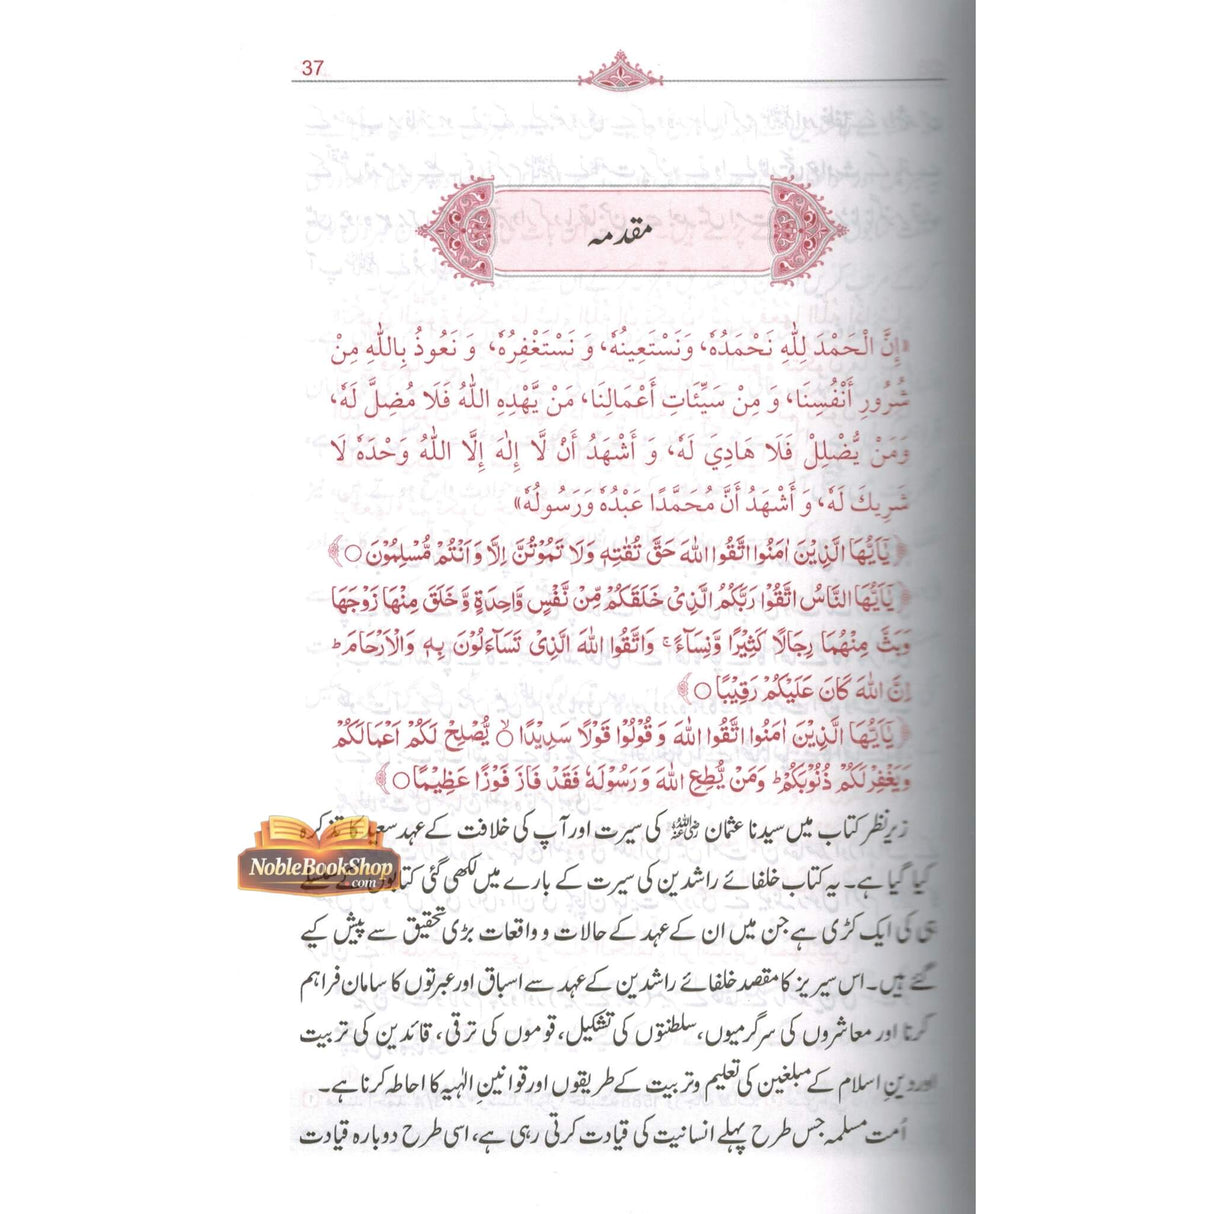 37
مقدمہ
«إِنَّ الْحَمْدَ لِلّٰهِ نَحْمَدُهٗ، وَنَسْتَعِينُهٗ، وَ نَسْتَغْفِرُهٗ، وَ نَعُوذُ بِاللّٰهِ مِنْ
شُرُورِ أَنْفُسِنَا، وَ مِنْ سَيِّئَاتِ أَعْمَالِنَا، مَنْ يَّهْدِهِ اللّٰهُ فَلَا مُضِلَّ لَهٗ،
وَمَنْ يُّضْلِلْ فَلَا هَادِيَ لَهٗ، وَ أَشْهَدُ أَنْ لَّا إِلٰهَ إِلَّا اللّٰهُ وَحْدَهٗ لَا
شَرِيكَ لَهٗ، وَ أَشْهَدُ أَنَّ مُحَمَّدًا عَبْدُهٗ وَرَسُولُهٗ»
﴿يٰۤاَيُّهَا الَّذِيْنَ اٰمَنُوا اتَّقُوا اللّٰهَ حَقَّ تُقٰتِهٖ وَلَا تَمُوْتُنَّ اِلَّا وَاَنْتُمْ مُّسْلِمُوْنَ ○﴾
﴿يٰۤاَيُّهَا النَّاسُ اتَّقُوْا رَبَّكُمُ الَّذِيْ خَلَقَكُمْ مِّنْ نَّفْسٍ وَّاحِدَةٍ وَّخَلَقَ مِنْهَا زَوْجَهَا
وَبَثَّ مِنْهُمَا رِجَالًا كَثِيْرًا وَّنِسَآءً ۚ وَاتَّقُوا اللّٰهَ الَّذِيْ تَسَآءَلُوْنَ بِهٖ وَالْاَرْحَامَ ؕ
اِنَّ اللّٰهَ كَانَ عَلَيْكُمْ رَقِيْبًا ○﴾
﴿يٰۤاَيُّهَا الَّذِيْنَ اٰمَنُوا اتَّقُوا اللّٰهَ وَ قُوْلُوْا قَوْلًا سَدِيْدًا ○ۙ يُّصْلِحْ لَكُمْ اَعْمَالَكُمْ
وَيَغْفِرْ لَكُمْ ذُنُوْبَكُمْ ؕ وَمَنْ يُّطِعِ اللّٰهَ وَ رَسُوْلَهٗ فَقَدْ فَازَ فَوْزًا عَظِيْمًا ○﴾
زیر نظر کتاب میں سیدنا عثمان رضی اللہ عنہ کی سیرت اور آپ کی خلافت کے عہد سعید کا تذکرہ
کیا گیا ہے۔ یہ کتاب خلفائے راشدین کی سیرت کے بارے میں لکھی گئی
NobleBookShop
.com
ہی کی ایک کڑی ہے جن میں ان کے عہد کے حالات و واقعات بڑی تحقیق سے پیش کیے
گئے ہیں۔ اس سیریز کا مقصد خلفائے راشدین کے عہد سے اسباق اور عبرتوں کا سامان فراہم
کرنا اور معاشروں کی سرگرمیوں، سلطنتوں کی تشکیل، قوموں کی ترقی، قائدین کی تربیت
اور دینِ اسلام کے مبلغین کی تعلیم و تربیت کے طریقوں اور قوانینِ الٰہیہ کا احاطہ کرنا ہے۔
اُمت مسلمہ جس طرح پہلے انسانیت کی قیادت کرتی رہی ہے، اسی طرح دوبارہ قیادت